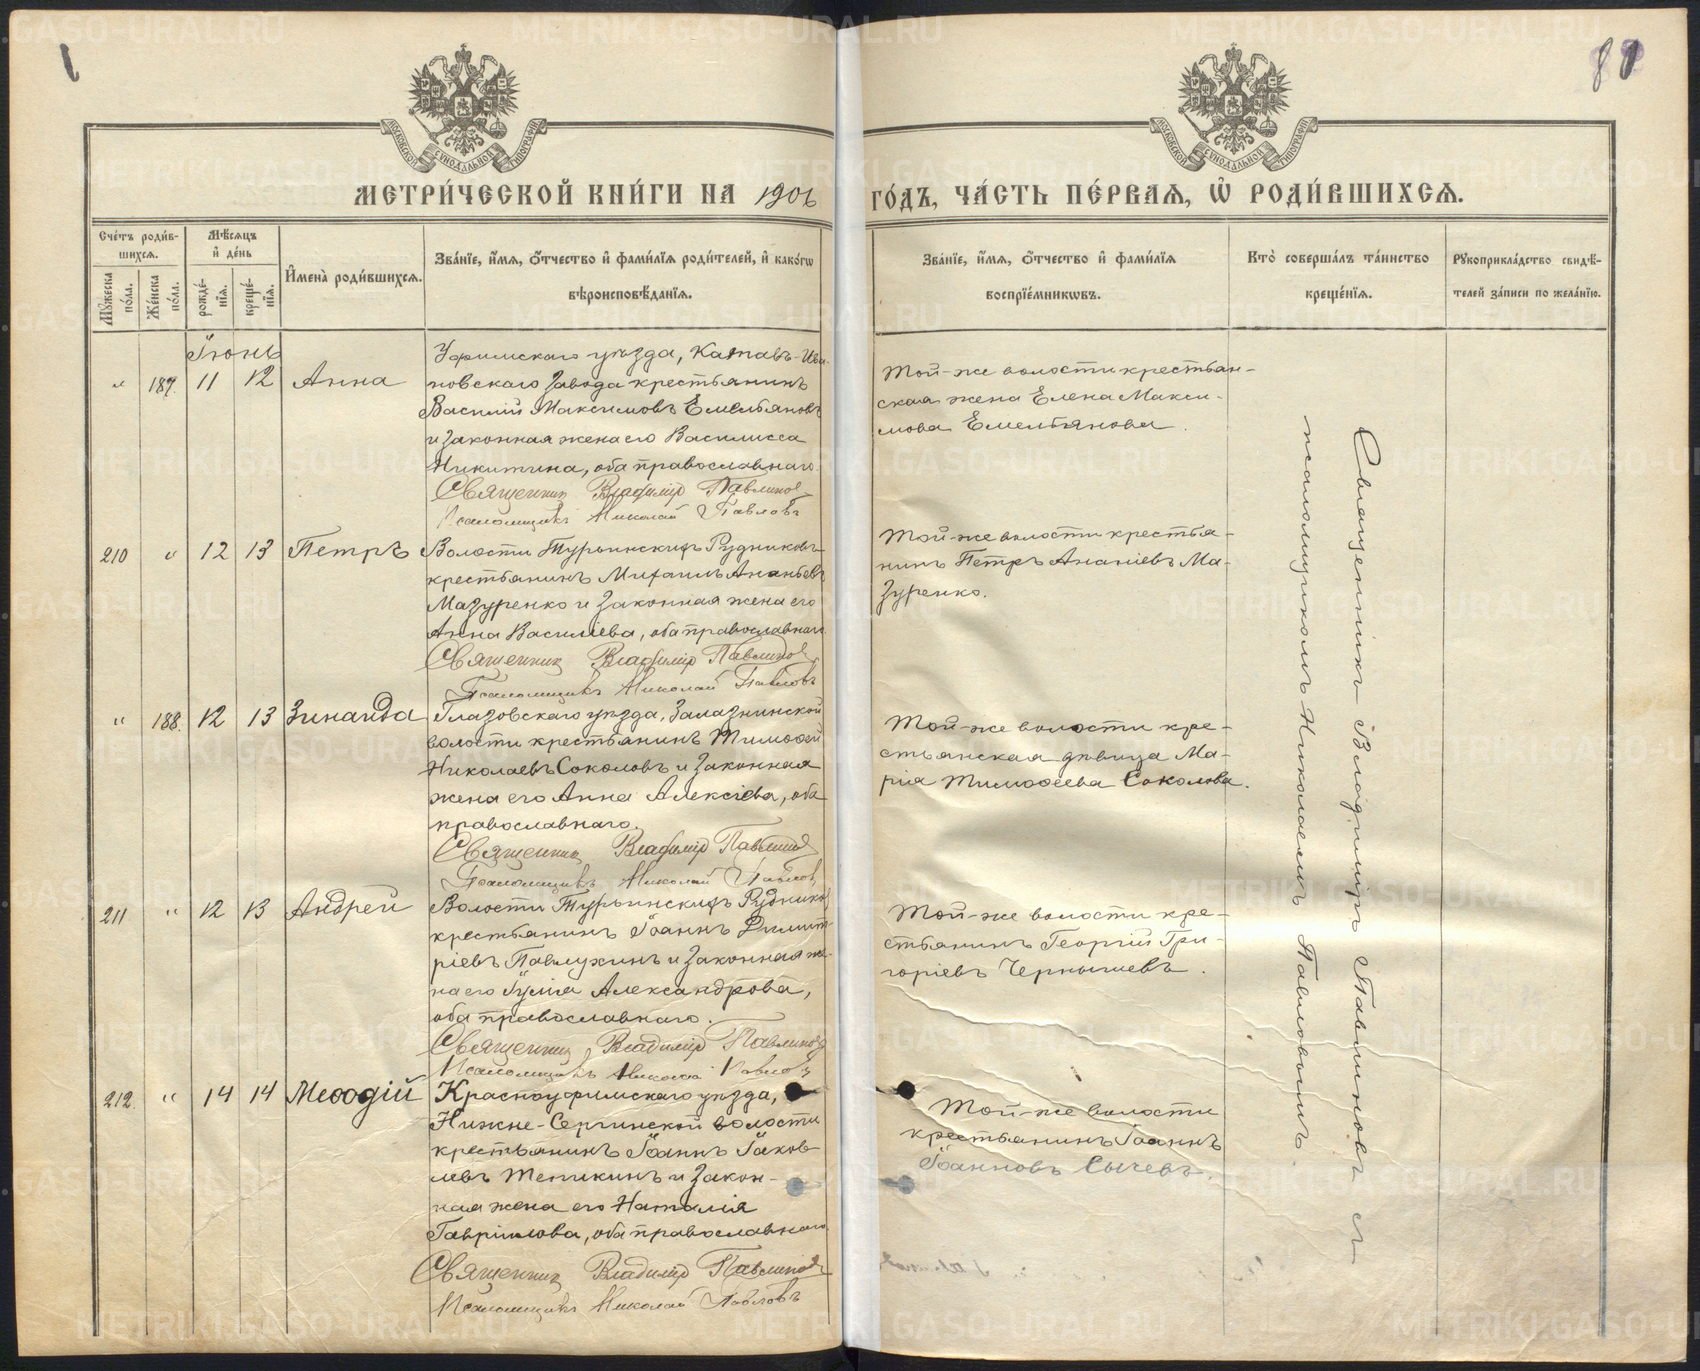 81
МЕТРИ́ЧЕСКОЙ КНИ́ГИ НА 1906 ГО́ДЪ, ЧА́СТЬ ПЕ́РВАЯ, Ѡ҆ РОДИ́ВШИХСЯ.
Сче́тъ роди́вшихся.
Му́жеска по́ла.
Же́нска по́ла.
Мѣ́сяцъ и҆ де́нь
рожде́нїя.
креще́нїя.
И҆мена̀ роди́вшихся.
Зва́нїе, и҆́мя, ѻ҆́тчество и҆ фами́лїя роди́телей, и҆ како́гѡ
вѣроисповѣ́данїя.
Зва́нїе, и҆́мя, ѻ҆́тчество и҆ фами́лїя
воспрїе́мникѡвъ.
Кто̀ соверша́лъ та́инство
креще́нїя.
Рꙋкоприкла́дство свидѣ́-
телей за́писи по жела́нїю.
Іюнь
" 187. 11 12 Анна
Уфимскаго уѣзда, Катавъ-Ива-
новскаго завода крестьянинъ
Василій Максимовъ Емельяновъ
и законная жена его Василисса
Никитина, оба православнаго.
Священник Владимір Павлинов
Псаломщикъ Николай Павловъ
Той-же волости крестьян-
ская жена Елена Макси-
мова Емельянова.
210 " 12 13 Петръ
Волости Турьинскихъ Рудниковъ
крестьянинъ Михаилъ Ананьевъ
Мазуренко и законная жена его
Анна Василіева, оба православнаго.
Священник Владимір Павлинов
Псаломщикъ Николай Павловъ
Той-же волости крестья-
нинъ Петръ Ананіевъ Ма-
зуренко.
" 188. 12 13 Зинаида
Глазовскаго уѣзда, Залазнинской
волости крестьянинъ Тимоѳей
Николаевъ Соколовъ и законная
жена его Анна Алексіева, оба
православнаго.
Священник Владимір Павлинов
Псаломщикъ Николай Павловъ
Той-же волости кре-
стьянская дѣвица Ма-
рія Тимоѳеева Соколова.
211 " 12 13 Андрей
Волости Турьинскихъ Рудников
крестьянинъ Іоаннъ Димит-
ріевъ Павлухинъ и законная же-
на его Іулія Александрова,
оба православнаго.
Священник Владимір Павлинов
Псаломщикъ Николай Павловъ
Той-же волости кре-
стьянинъ Георгій Гри-
горіевъ Чернышевъ.
212. " 14 14 Меѳодій
Красноуфимскаго уѣзда,
Нижне-Сергинской волости
крестьянинъ Іоаннъ Іаков-
левъ Тепикинъ и закон-
ная жена его Наталія
Гавріилова, оба православнаго.
Священник Владимір Павлинов
Псаломщикъ Николай Павловъ
Той-же волости
крестьянинъ Іоаннъ
Іоанновъ Сычевъ.
Священникъ Владиміръ Павлиновъ съ
псаломщикомъ Николаемъ Павловымъ.
METRIKI.GASO-URAL.RU